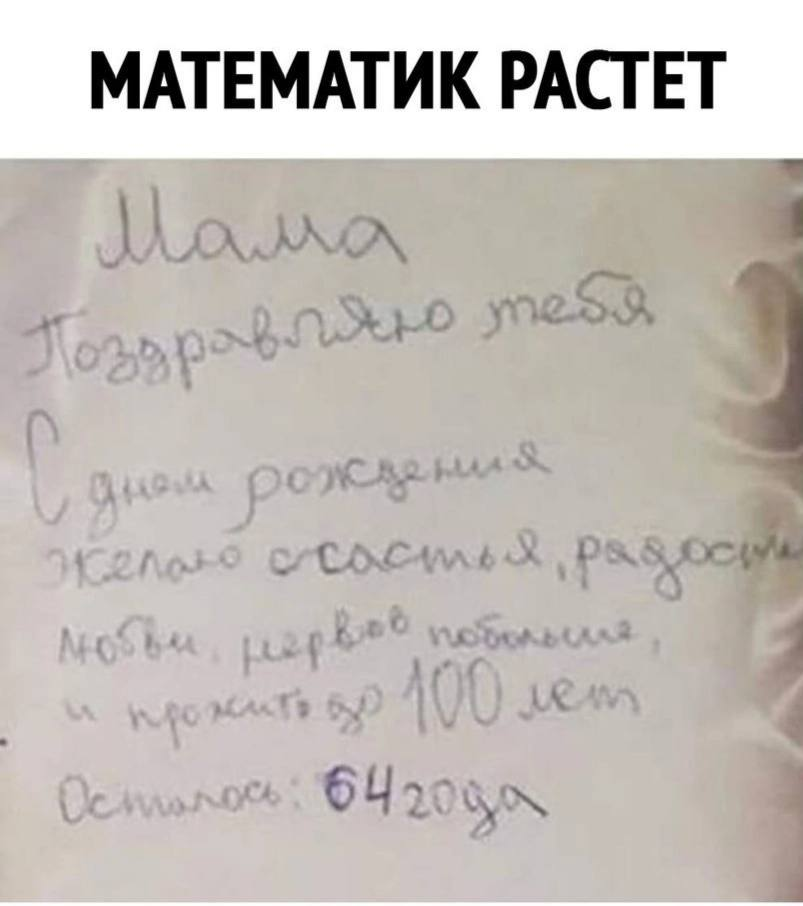 МАТЕМАТИК РАСТЕТ
Мама
Поздравляю тебя
С днем рождения
желаю счастья, радости
любви, нервов побольше,
и прожить до 100 лет
Осталось: 64 года